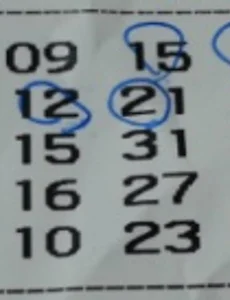 09 15
12 21
15 31
16 27
10 23